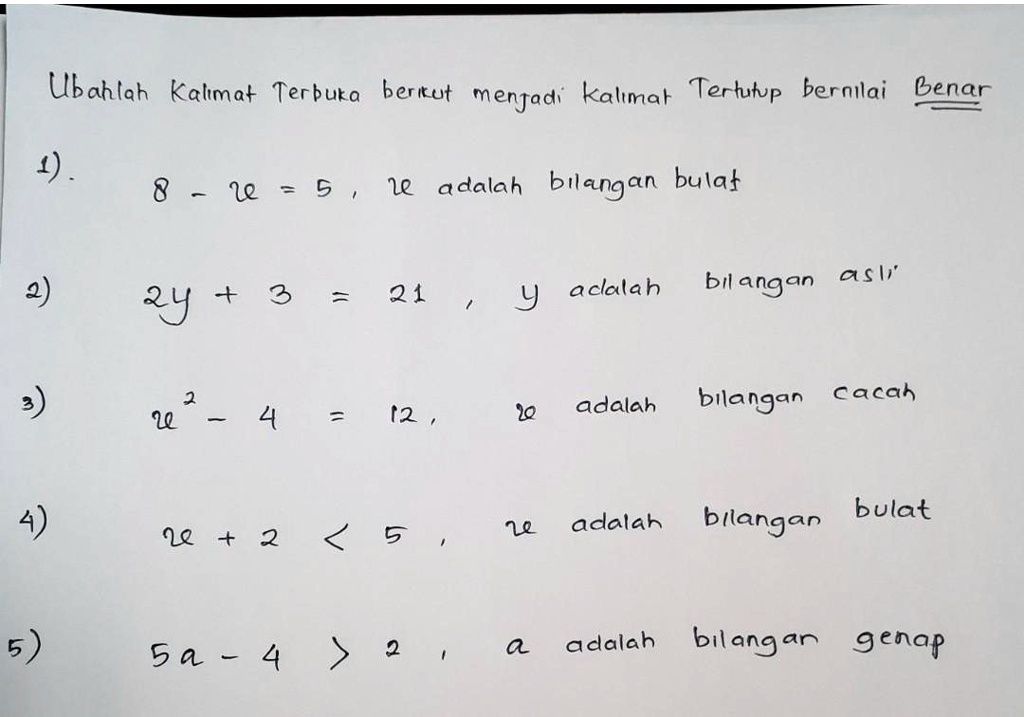 Ubahlah Kalimat Terbuka berikut menjadi kalimat Tertutup bernilai Benar
1). 8 - x = 5, x adalah bilangan bulat
2) 2y + 3 = 21, y adalah bilangan asli
3) x² - 4 = 12, x adalah bilangan cacah
4) x + 2 < 5, x adalah bilangan bulat
5) 5a - 4 > 2, a adalah bilangan genap